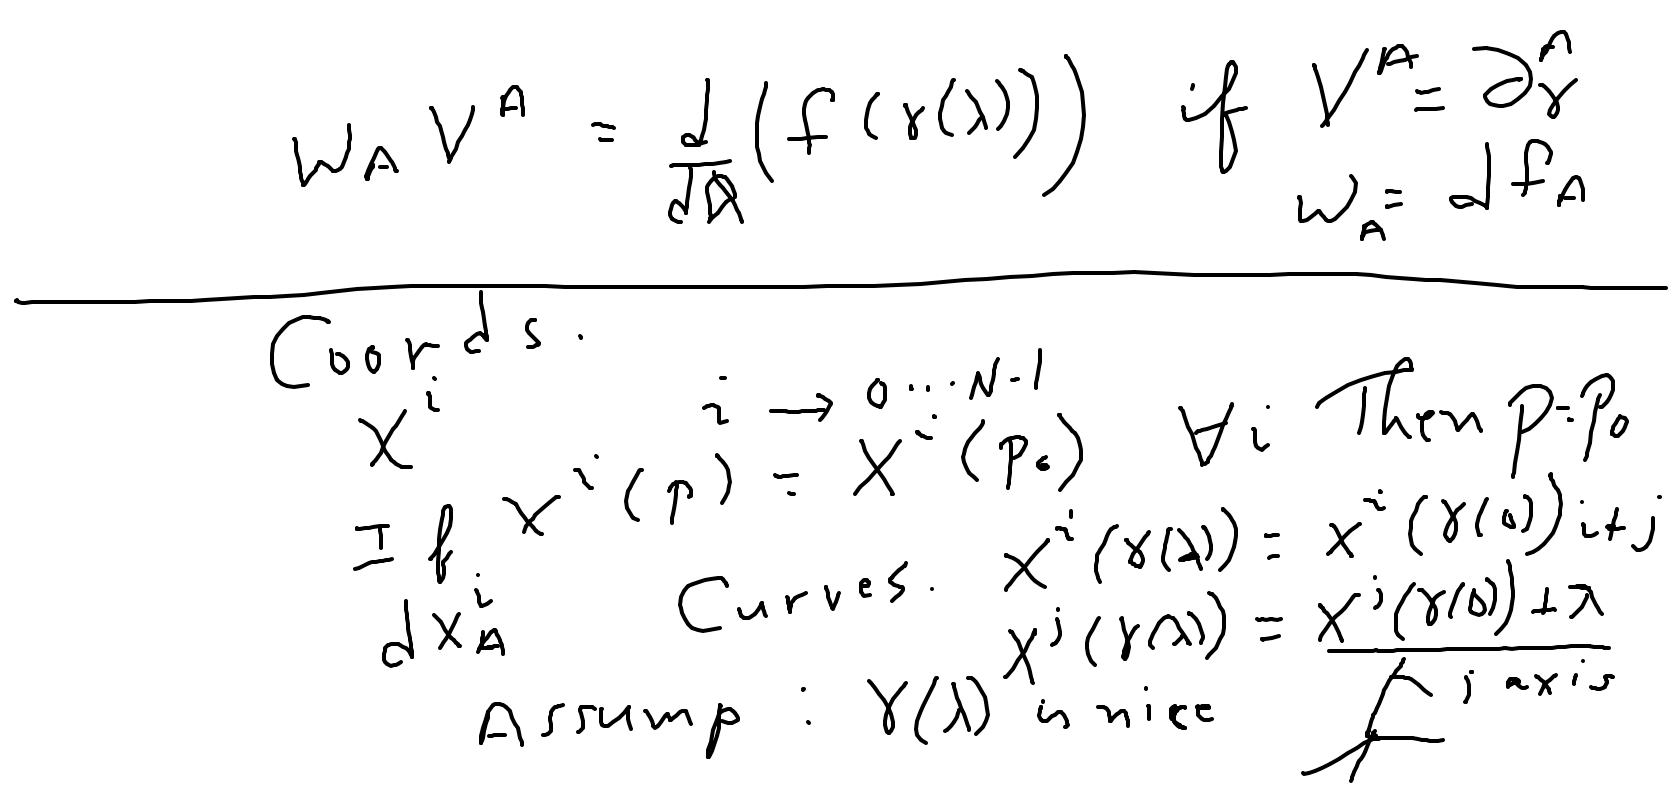 W_A V^A = d/dλ (f(γ(λ))) if V^A = ∂_γ^A
W_A = df_A
Coords.
x^i i → 0...N-1
If x^i(p) = x^i(p_0) ∀i Then p=p_0
dx^i_A Curves. x^i(γ(λ)) = x^i(γ(0)) i≠j
x^j(γ(λ)) = x^j(γ(0))+λ
Assump: γ(λ) is nice
j axis